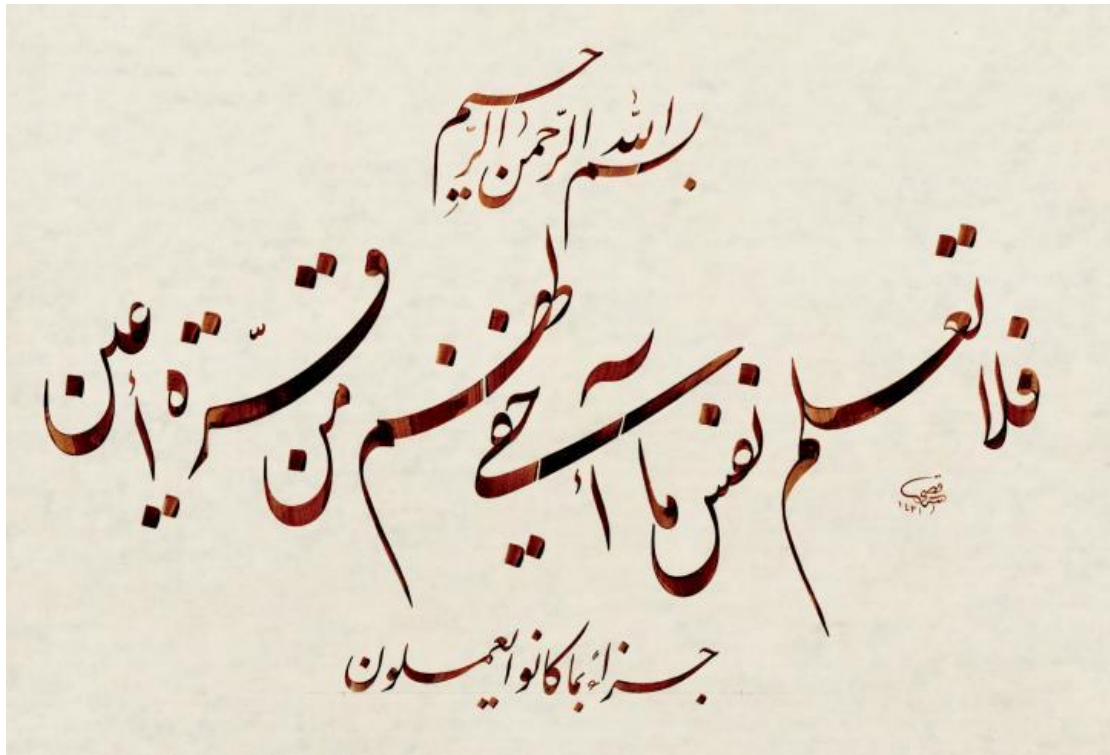 بسم الله الرّحمن الرّحيم
فلا تعلم نفس ما أخفي لهم من قرّة أعين
جزاء بما كانوا يعملون
١٤٣١